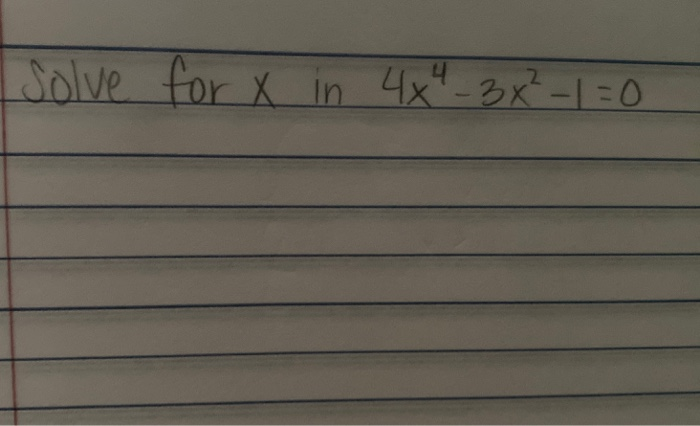 Solve for x in 4x⁴-3x²-1=0